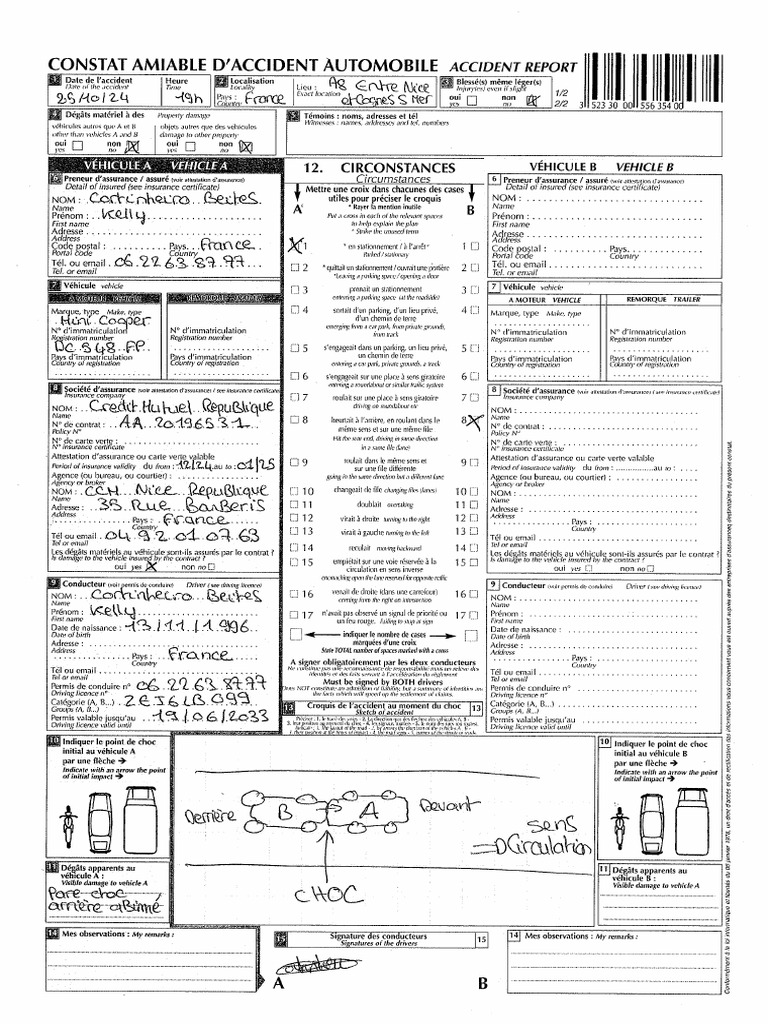 CONSTAT AMIABLE D'ACCIDENT AUTOMOBILE ACCIDENT REPORT
1 Date de l'accident Heure
Date of the accident Time
25/10/24 19h
2 Localisation
Locality
Pays : France
Country
Lieu : A8 Entre Nice
Exact location et Cagnes S Mer
3 Blessé(s) même léger(s)
Injury(ies) even if slight
oui non
yes no
1/2
2/2
3 523 30 00 556 354 00
4 Dégâts matériel à des Property damage
véhicules autres que A et B objets autres que des véhicules
other than vehicles A and B damage to other property
oui non oui non
yes no yes no
5 Témoins : noms, adresses et tél
Witnesses : names, addresses and tel, numbers
VÉHICULE A VEHICLE A
6 Preneur d'assurance / assuré (voir attestation d'assurance)
Detail of insured (see insurance certificate)
NOM : Cortinheiro Beites
Name
Prénom : Kelly
First name
Adresse :
Address
Code postal : Pays France
Portal code Country
Tél. ou email : 06 22 63 87 77
Tel. or email
7 Véhicule vehicle
A MOTEUR VEHICLE REMORQUE TRAILER
Marque, type Make, type
Mini Cooper
N° d'immatriculation N° d'immatriculation
Registration number Registration number
DC 948 FP
Pays d'immatriculation Pays d'immatriculation
Country of registration Country of registration
8 Société d'assurance (voir attestation d'assurance / see insurance certificate)
Insurance company
NOM : Credit Mutuel Republique
Name
N° de contrat : AA 2019653 1
Policy N°
N° de carte verte :
N° insurance certificate
Attestation d'assurance ou carte verte valable
Period of insurance validity du from : 12/24 au to : 01/25
Agence (ou bureau, ou courtier) :
Agency or broker
NOM : CCM Nice Republique
Name
Adresse : 35 Rue Barberis
Address
Pays : France
Country
Tél ou email : 04 92 01 07 63
Tel or email
Les dégâts matériels au véhicule sont-ils assurés par le contrat ?
Is damage to the vehicle insured by the contract ?
oui yes non no
9 Conducteur (voir permis de conduire) Driver (see driving licence)
NOM : Cortinheiro Beites
Name
Prénom : Kelly
First name
Date de naissance : 13/11/1996
Date of birth
Adresse :
Address
Pays : France
Country
Tél ou email
Tel or email
Permis de conduire n° 06 22 63 87 77
Driving licence n°
Catégorie (A, B...) : 2EJ6LB099
Groups (A, B...)
Permis valable jusqu'au 19/06/2033
Driving licence valid until
12. CIRCONSTANCES
Circumstances
Mettre une croix dans chacunes des cases
utiles pour préciser le croquis
A * Rayer la mention inutile B
Put a cross in each of the relevant spaces
to help explain the plan
* Strike the unused term
1 * en stationnement / à l'arrêt* 1
Parked / stationary
2 * quittait un stationnement / ouvrait une portière 2
*Leaving a parking space / opening a door
3 prenait un stationnement 3
entering a parking space (at the roadside)
4 sortait d'un parking, d'un lieu privé, 4
d'un chemin de terre
emerging from a car park, from private grounds,
from track
5 s'engageait dans un parking, un lieu privé, 5
un chemin de terre
entering a car park, private grounds, a track
6 s'engageait sur une place à sens giratoire 6
entering a roundabout or similar traffic system
7 roulait sur une place à sens giratoire 7
driving on roundabout air
8 heurtait à l'arrière, en roulant dans le 8
même sens et sur une même file
Hit the rear end, driving in same direction
in a same file (lane)
9 roulait dans le même sens et 9
sur une file différente
going in the same direction but a different lane
10 changeait de file changing files (lanes) 10
11 doublait overtaking 11
12 virait à droite turning to the right 12
13 virait à gauche turning to the left 13
14 reculait moving backward 14
15 empiétait sur une voie réservée à la 15
circulation en sens inverse
encroaching upon the lane reserved for opposite traffic
16 venait de droite (dans une carrefour) 16
coming from the right an intersection
17 n'avait pas observé un signal de priorité ou 17
un feu rouge. Failing to stop at sign
indiquer le nombre de cases
marquées d'une croix
State TOTAL number of spaces marked with a cross
A signer obligatoirement par les deux conducteurs
Must be signed by BOTH drivers
13 Croquis de l'accident au moment du choc 13
Sketch of accident
VÉHICULE B VEHICLE B
6 Preneur d'assurance / assuré (voir attestation d'assurance)
Detail of insured (see insurance certificate)
NOM :
Name
Prénom :
First name
Adresse :
Address
Code postal : Pays.
Portal code Country
Tél. ou email :
Tel. or email
7 Véhicule vehicle
A MOTEUR VEHICLE REMORQUE TRAILER
Marque, type Make, type
N° d'immatriculation N° d'immatriculation
Registration number Registration number
Pays d'immatriculation Pays d'immatriculation
Country of registration Country of registration
8 Société d'assurance (voir attestation d'assurance / see insurance certificate)
Insurance company
NOM :
Name
N° de contrat :
Policy N°
N° de carte verte :
N° insurance certificate
Attestation d'assurance ou carte verte valable
Period of insurance validity du from : au to :
Agence (ou bureau, ou courtier) :
Agency or broker
NOM :
Name
Adresse :
Address
Pays :
Country
Tél ou email :
Tel or email
Les dégâts matériels au véhicule sont-ils assurés par le contrat ?
Is damage to the vehicle insured by the contract ?
oui yes non no
9 Conducteur (voir permis de conduire) Driver (see driving licence)
NOM :
Name
Prénom :
First name
Date de naissance :
Date of birth
Adresse :
Address
Pays :
Country
Tél ou email
Tel or email
Permis de conduire n°
Driving licence n°
Catégorie (A, B...) :
Groups (A, B...)
Permis valable jusqu'au
Driving licence valid until
10 Indiquer le point de choc
initial au véhicule A
par une flèche
Indicate with an arrow the point
of initial impact
11 Dégâts apparents au
véhicule A :
Visible damage to vehicle A
Pare choc
arrière abîmé
Derrière B A Devant
sens
Circulation
CHOC
10 Indiquer le point de choc
initial au véhicule B
par une flèche
Indicate with an arrow the point
of initial impact
11 Dégâts apparents au
véhicule B :
Visible damage to vehicle A
14 Mes observations : My remarks :
15 Signature des conducteurs 15
Signatures of the drivers
A B
14 Mes observations : My remarks :